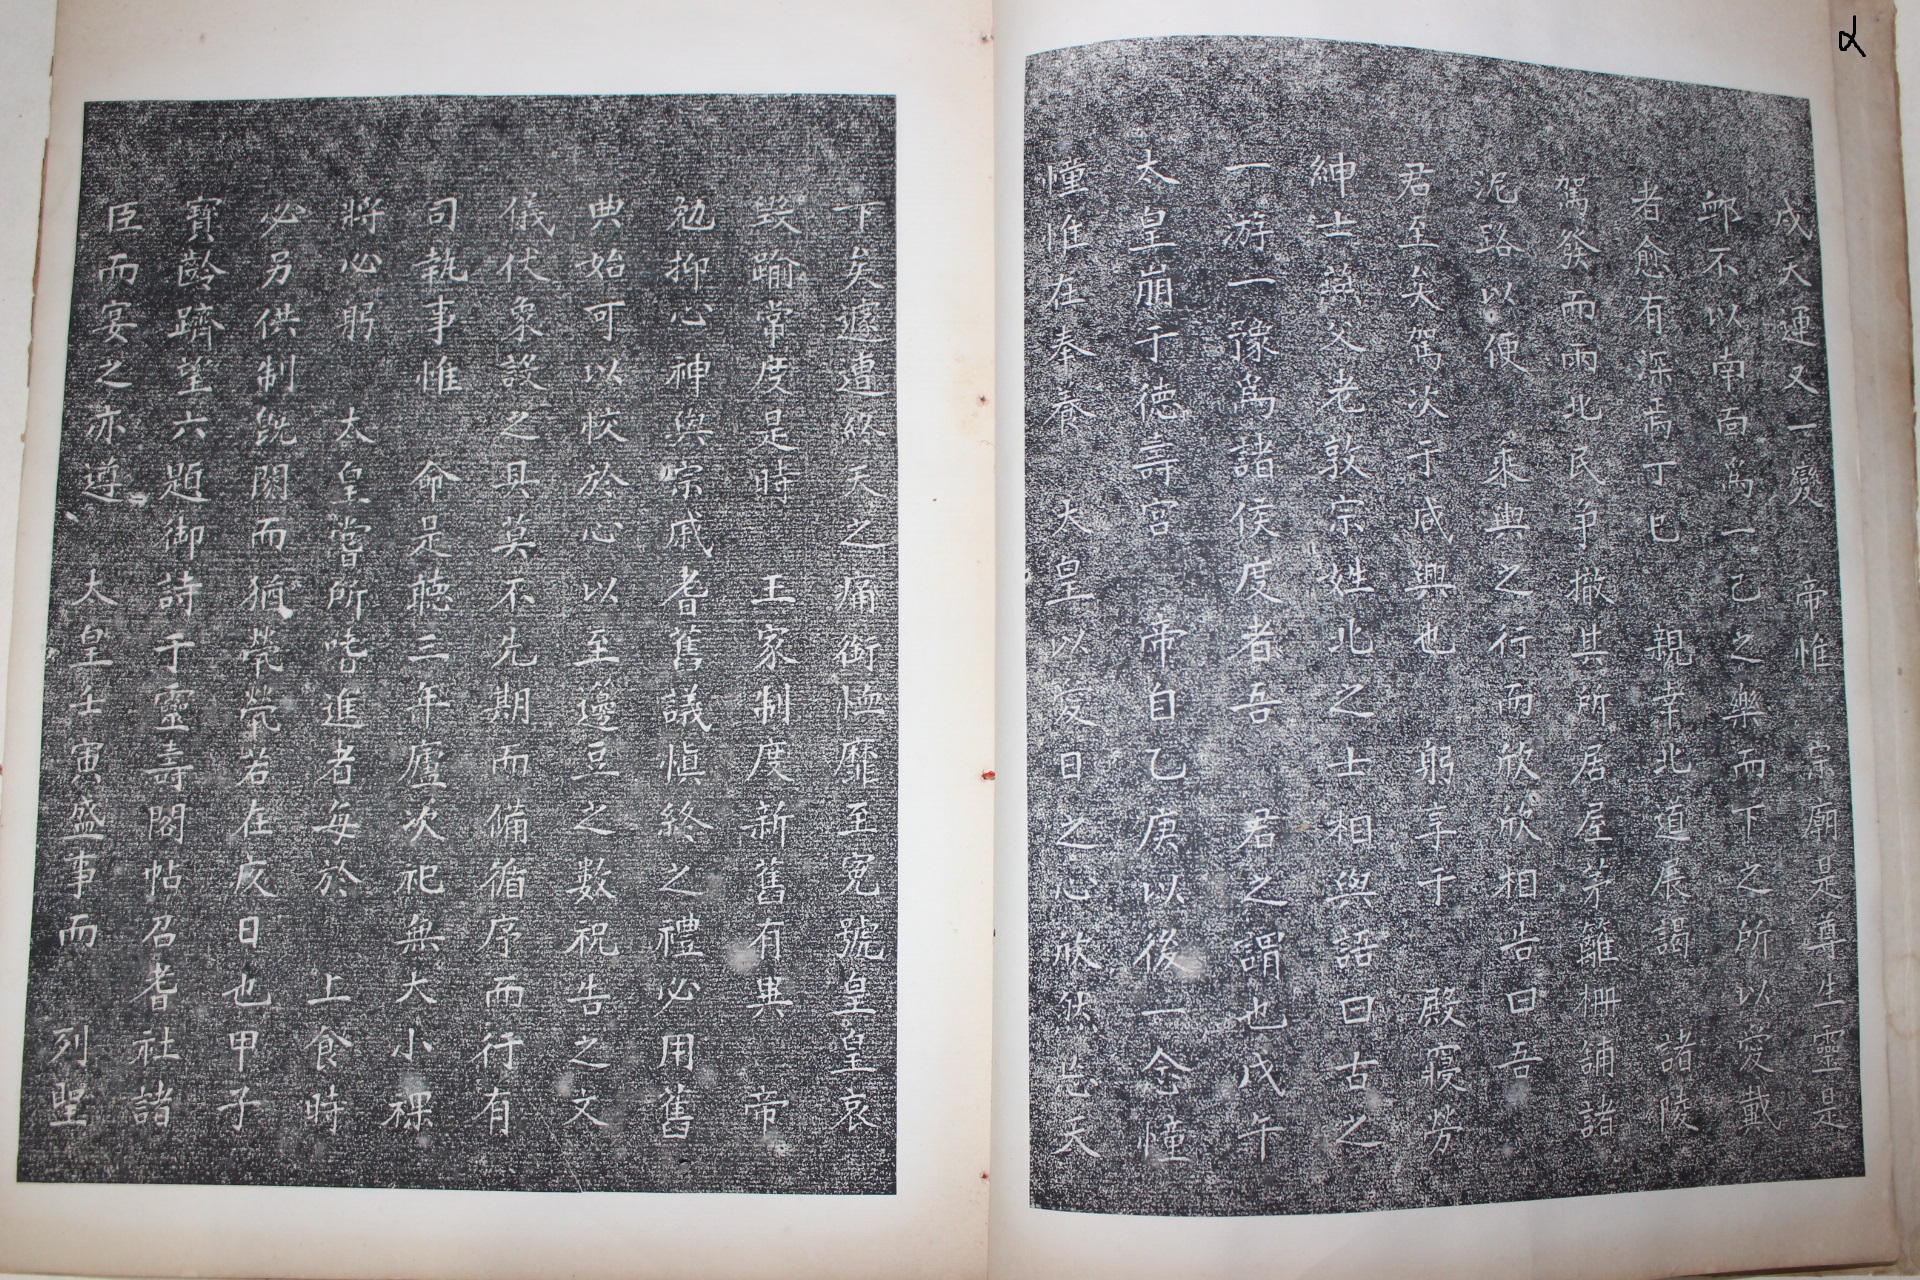 成天運又一變 帝惟 宗廟是尊生靈是
卹不以南面為一己之樂而下之所以愛戴
者愈有深焉丁巳 親幸北道展謁 諸陵
駕發而雨北民爭撤其所居屋茅籬柵鋪諸
泥路以便 乘輿之行而欣欣相告曰吾
君至矣駕次于咸興也 躬享于 殿寢勞
紳士燕父老敦宗姓北之士相與語曰古之
一游一豫爲諸侯度者吾 君之謂也戊午
太皇崩于德壽宮 帝自乙庚以後一念憧
憧惟在奉養 太皇以愛日之心欣然忘天
下矣遽遭終天之痛銜恤靡至冤號皇皇哀
毀踰常度是時 王家制度新舊有異 帝
勉抑心神與宗戚耆舊議愼終之禮必用舊
典始可以恔於心以至籩豆之數祝告之文
儀仗象設之具莫不先期而備循序而行有
司執事惟 命是聽三年廬次祀無大小祼
將必躬 太皇嘗所嗜進者每於 上食時
必另供制旣闋而猶煢煢若在疚日也甲子
寶齡躋望六題御詩于靈壽閣帖召耆社諸
臣而宴之亦遵 太皇壬寅盛事而 列聖